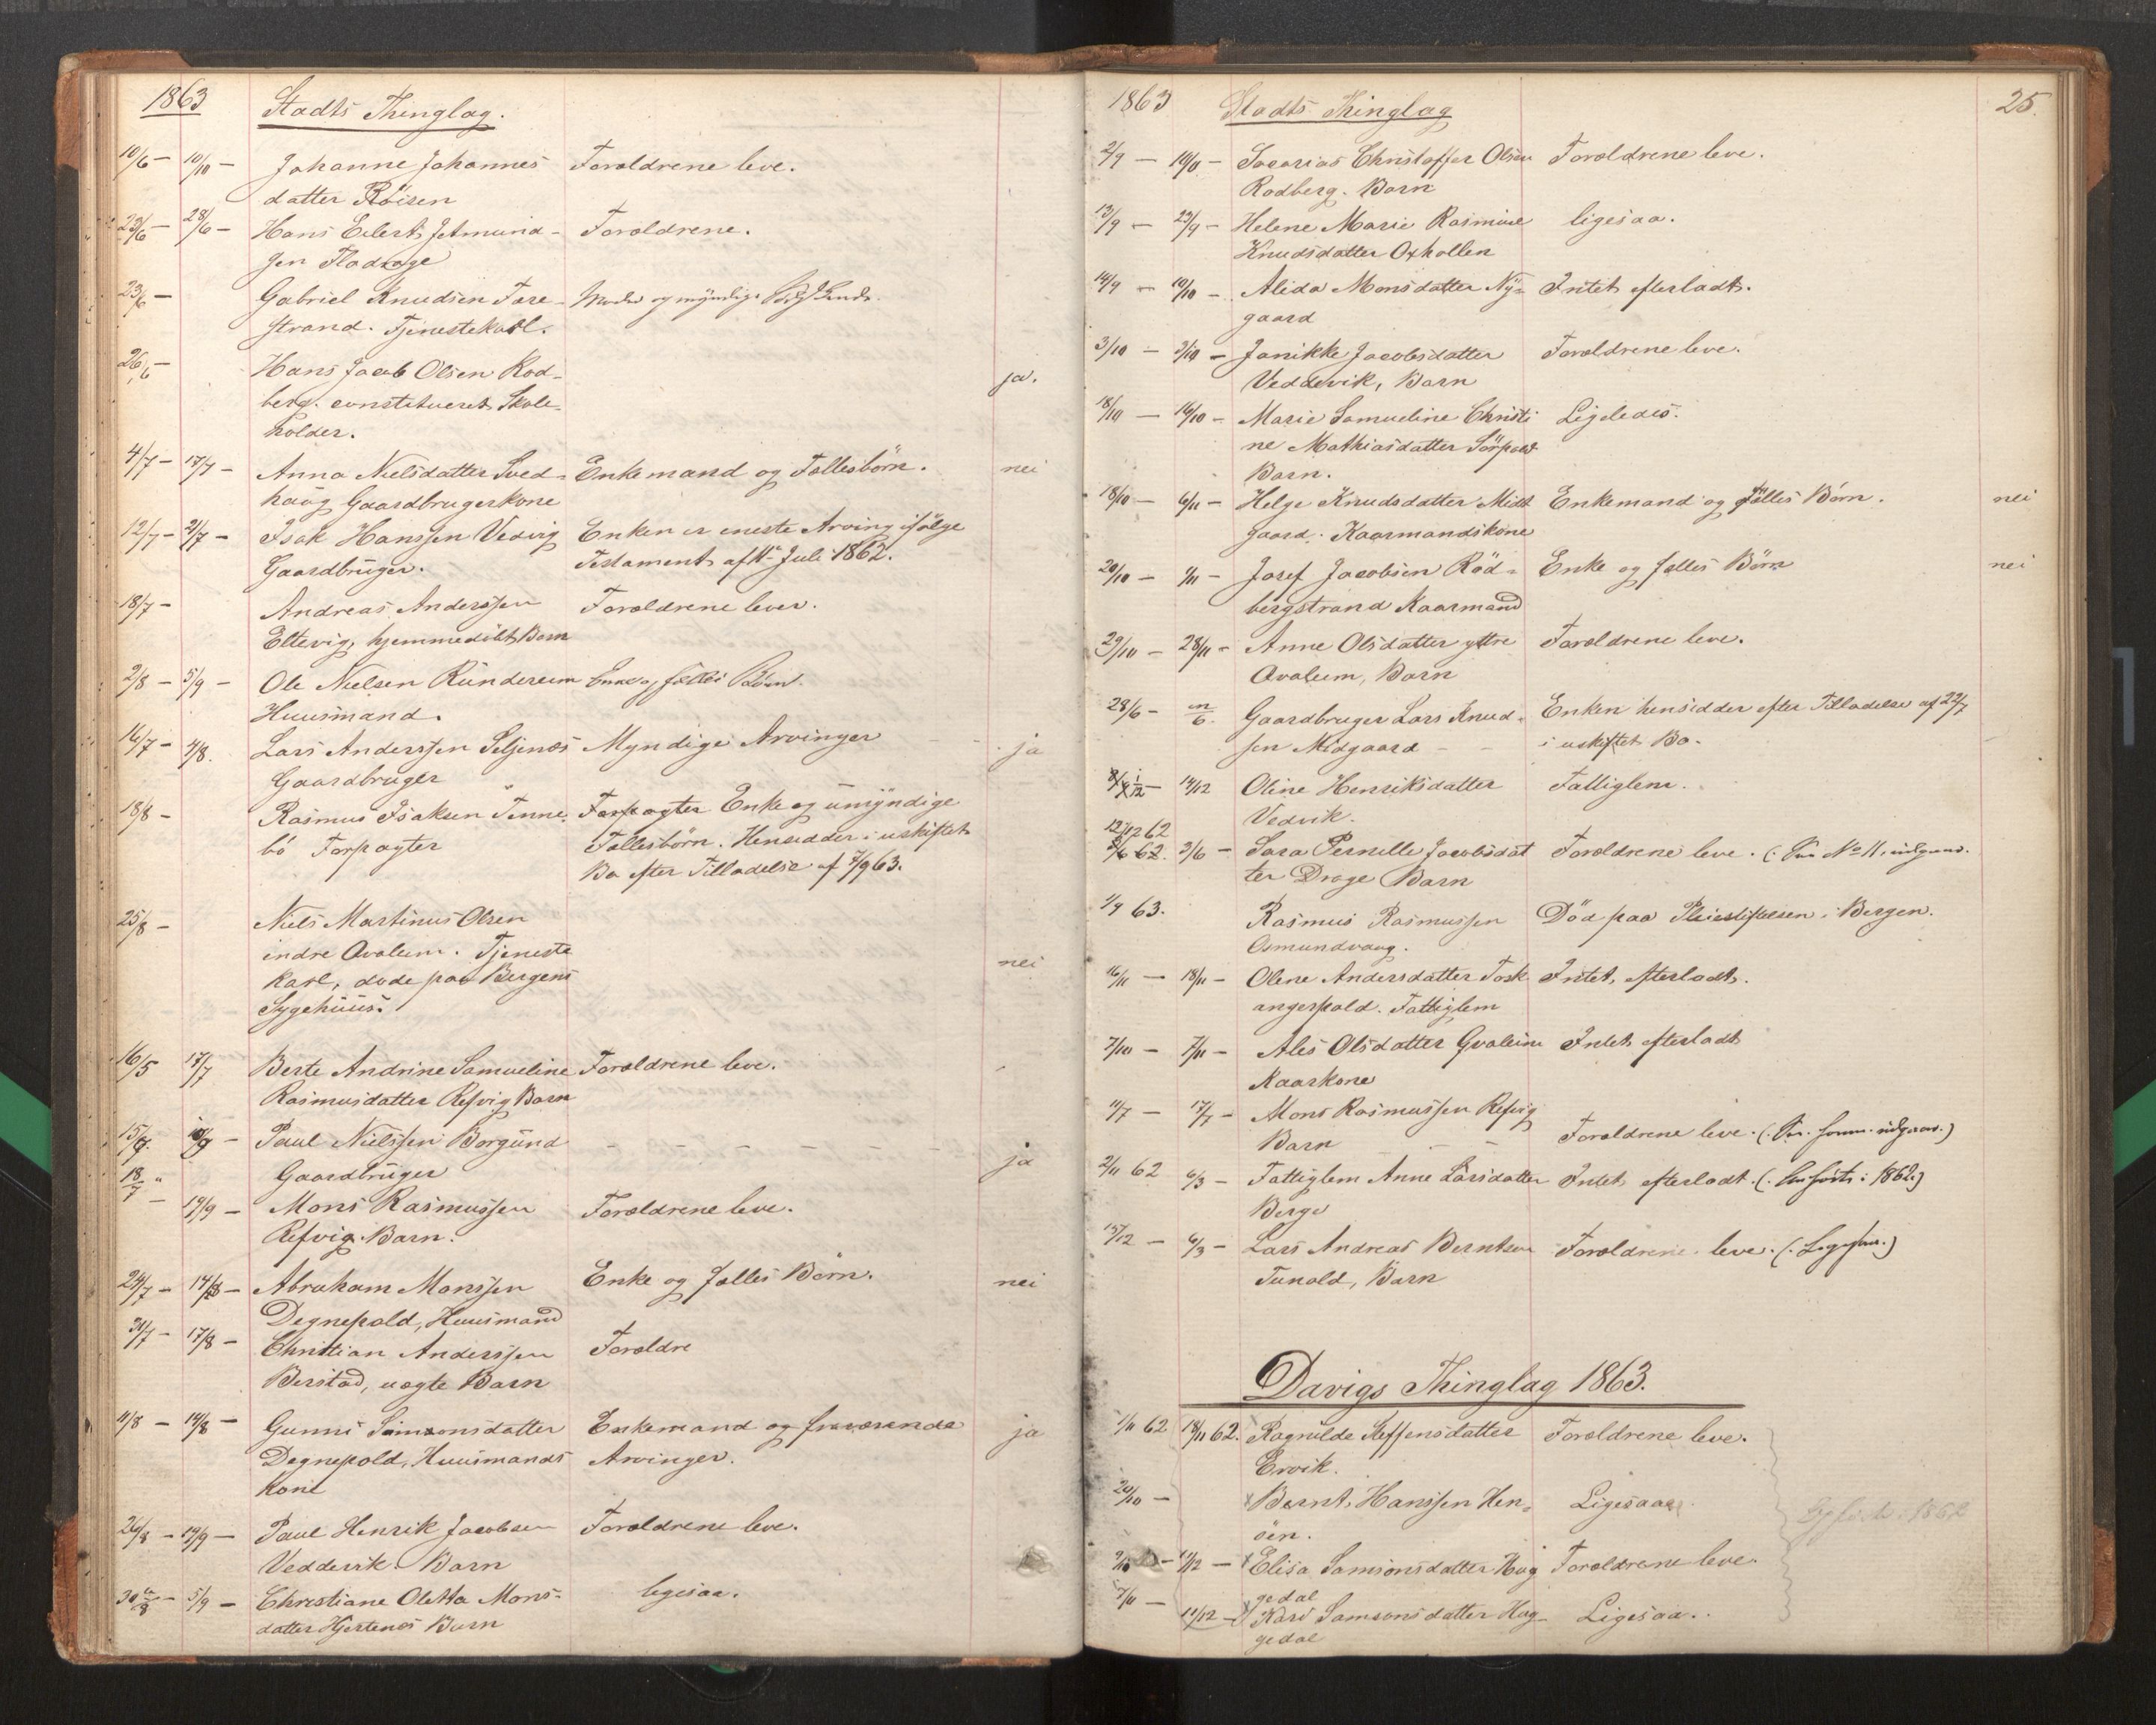 1863 Stadts Thinglag.
10/6 — 10/10 — Johanne Johannes Forældrene leve.
datter Röisen
23/6 — 28/6 — Hans Eilert Jetmund- Forældrene.
sen Flodrage
23/6 — Gabriel Knudsen Tare- Moder og myndige
strand. Tjenestekarl.
26/6 — Hans Jacob Olsen Rod- ja.
berg. constitueret Skole-
holder.
4/7 — 17/7 — Anna Nielsdatter Sved- Enkemand og Fællesbörn. nei
haug Gaardbrugerkone
12/7 — 21/7 — Isak Hanssen Vedvig Enken er eneste Arving ifölge
Gaardbruger. Testament af Juli 1862.
18/7 — Andreas Anderssen Forældrene lever.
Eltevig, hjemmedöbt Barn
2/8 — 5/9 — Ole Nielsen Rundereim Enke og fælles Börn.
Huusmand.
16/7 — 4/8. Lars Anderssen Seljenæs Myndige Arvinger ja
Gaardbruger
18/8 — Rasmus Isaksen Tenne- Forpagter Enke og umyndige
bö Forpagter Fællesbörn. Hensidder i uskiftet
Bo efter Tilladelse af 7/9 63.
25/8 — Niels Martinus Olsen
indre Qvalem. Tjeneste
karl, döde paa Bergens nei
Sygehuus.
16/5 17/7 Berte Andrine Samueline Forældrene leve.
Rasmusdatter Refvig Barn
15/7. Paul Nielssen Borgund — — — — — — ja
Gaardbruger
18/7 — 19/9 — Mons Rasmussen Forældrene leve.
Refvig. Barn.
24/7 — 14/8 — Abraham Monssen Enke og fælles Börn. nei
Degnepold, Huusmand
31/7 — 17/8 — Christian Anderssen Forældre
Berstad, uægte Barn
11/8 — 14/8 — Gunni Simonsdatter Enkemand og fraværende ja
Degnepold, Huusmands Arvinger.
kone
26/8 — 19/9 — Paul Henrik Jacobsen Forældrene leve.
Veddevik Barn
30/8 — 5/9 — Christiane Oletta Mons- ligesaa.
datter Hjertenæs Barn
1863 Stadts Thinglag 25.
2/9 — 10/11 — Sacarias Christoffer Olsen Forældrene leve.
Rodberg. Barn
13/9 — 23/9 — Helene Marie Rasmine ligesaa.
Knudsdatter Oxhollen
14/9 — 10/10 — Alida Monsdatter Ny- Intet efterladt.
gaard
3/10 — 3/10 — Janikke Jacobsdatter Forældrene leve.
Veddevik, Barn
18/10 — 16/10 — Marie Samueline Christi Ligeledes.
ne Mathiasdatter Sörpold
Barn.
18/10 — 6/11 — Helge Knudsdatter Midt Enkemand og fælles Börn. nei
gaard. Kaarmandskone
20/10 — 1/11 — Josef Jacobsen Röd- Enke og fælles Börn nei
bergstrand Kaarmand
29/10 — 28/11 — Anne Olsdatter yttre Forældrene leve.
Qvaleim, Barn
28/6 — Gaardbruger Lars Knud- Enken hensidder efter Tilladelse af 22/7
sen Midgaard — — i uskiftet Bo.
1/12 — 14/12 Oline Henriksdatter Fattiglem.
Vedvik.
12/12 62
3/6 — Sara Pernille Jacobsdat Forældrene leve.
ter Drage Barn
1/9 63. Rasmus Rasmussen Död paa Pleiestiftelsen i Bergen.
Osmundvaag.
16/11 — 18/11 — Olene Andersdatter Tosk Intet, efterladt.
angerpold. Fattiglem
7/10 — 7/11 — Ales Olsdatter Qvaleim Intet efterladt
Kaarkone
11/7 — 17/7 — Mons Rasmussen Refvig
Barn — — Forældrene leve.
2/11 62 6/3 — Fattiglem Anne Larsdatter Intet efterladt. (: 1862.)
Berge
15/12 — 6/3 — Lars Andreas Berntsen Forældrene leve.
Tunold, Barn
Davigs Thinglag 1863.
1/11 62 18/11 62. Ragnilde Steffensdatter Forældrene leve.
Ervik.
20/10 — Bernt Hanssen Hen- Ligesaa.
öen. 1862
11/12 — Elisa Samsonsdatter Hag Forældrene leve.
gedal
7/11 — 11/12 — Kari Samsonsdatter Hag- Ligesaa.
gedal